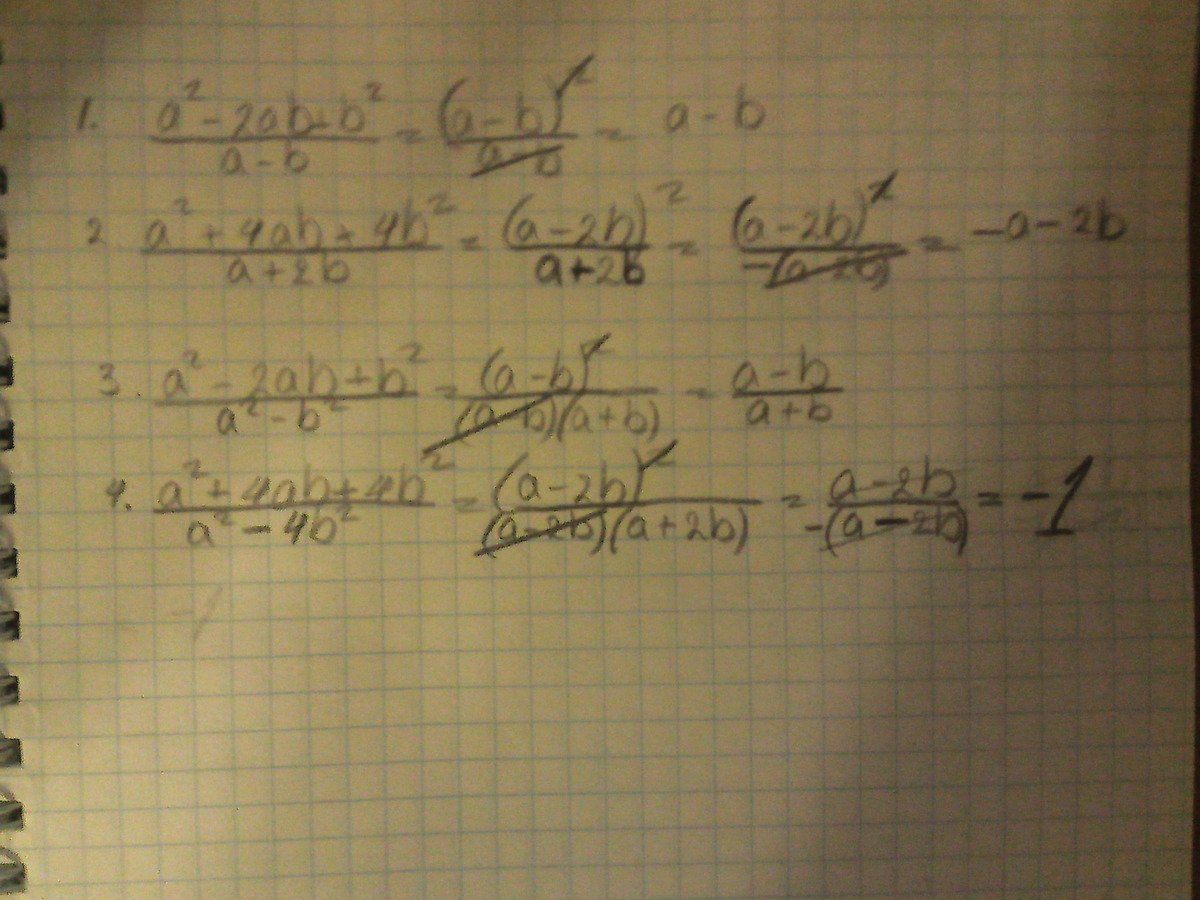 1. (a² - 2ab + b²)/(a - b) = (a - b)²/(a - b) = a - b
2 (a² + 4ab + 4b²)/(a + 2b) = (a - 2b)²/(a + 2b) = (a - 2b)²/(-(a - 2b)) = -a - 2b
3. (a² - 2ab + b²)/(a² - b²) = (a - b)²/((a - b)(a + b)) = (a - b)/(a + b)
4. (a² + 4ab + 4b²)/(a² - 4b²) = (a - 2b)²/((a - 2b)(a + 2b)) = (a - 2b)/(-(a - 2b)) = -1